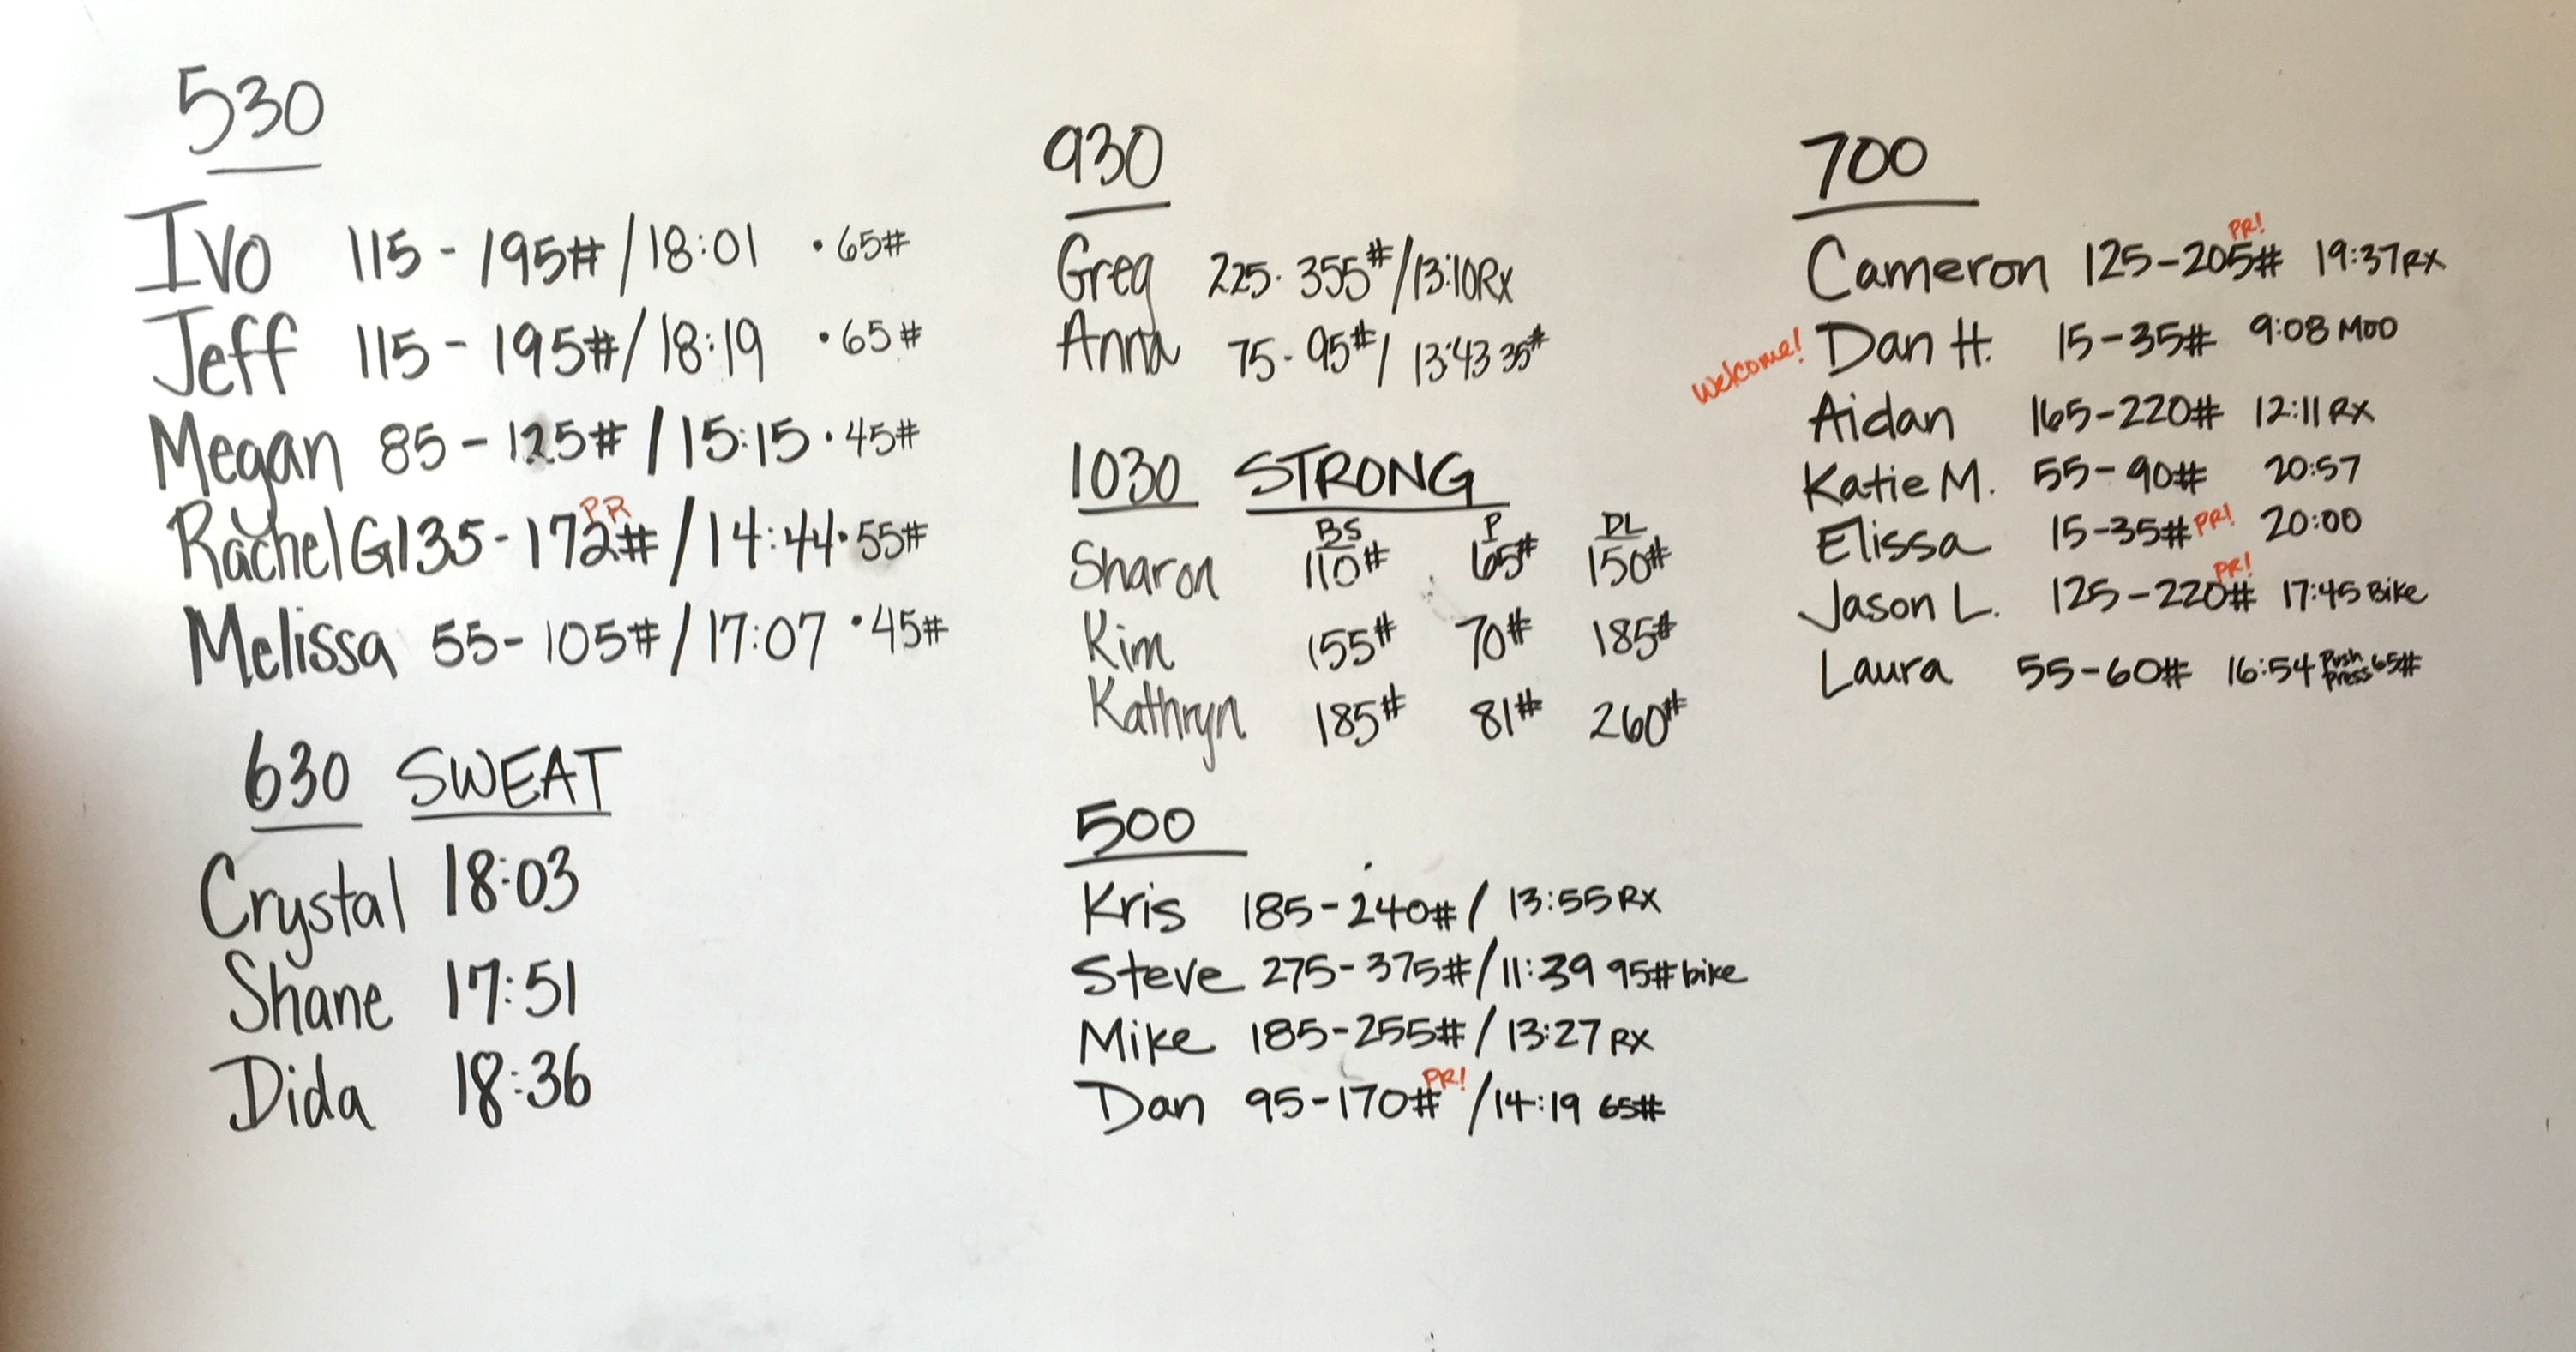 530
Ivo 115 - 195# / 18:01 · 65#
Jeff 115 - 195# / 18:19 · 65#
Megan 85 - 125# / 15:15 · 45#
PR
Rachel G 135 - 172# / 14:44 · 55#
Melissa 55 - 105# / 17:07 · 45#
630 SWEAT
Crystal 18:03
Shane 17:51
Dida 18:36
930
Greg 225 - 355# / 13:10 Rx
Anna 75 - 95# / 13:43 35#
1030 STRONG
BS P DL
Sharon 110# 65# 150#
Kim 155# 70# 185#
Kathryn 185# 81# 260#
500
Kris 185 - 240# / 13:55 RX
Steve 275 - 375# / 11:39 95# bike
Mike 185 - 255# / 13:27 RX
PR!
Dan 95 - 170# / 14:19 65#
700
PR!
Cameron 125 - 205# 19:37 RX
Welcome! Dan H. 15 - 35# 9:08 MOD
Aidan 165 - 220# 12:11 RX
Katie M. 55 - 90# 20:57
Elissa 15 - 35# PR! 20:00
PR!
Jason L. 125 - 220# 17:45 Bike
Laura 55 - 60# 16:54 Push Press 65#